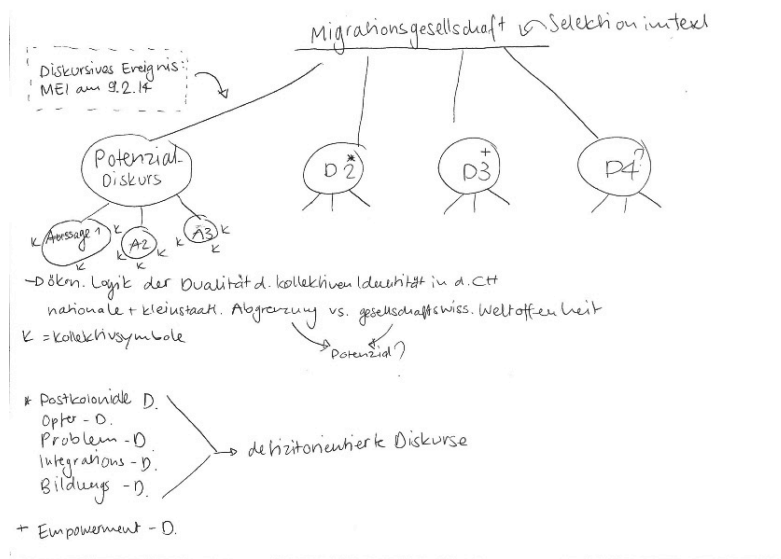 Migrationsgesellschaft
Selektion im text
Diskursives Ereignis:
MEI am 9.2.14
Potenzial-
Diskurs
D2*
D3+
D4?
K Aussage 1 K
K
K A2 K
K
K A3 K
K
ökon. Logik der Dualität d. kollektiven Identität in d. CH
nationale + kleinstaatl. Abgrenzung vs. gesellschaftswiss. Weltoffenheit
K = kollektivsymbole
Potenzial?
* Postkoloniale D.
Opfer - D.
Problem - D.
Integrations - D.
Bildungs - D.
→ defizitorientierte Diskurse
+ Empowerment - D.